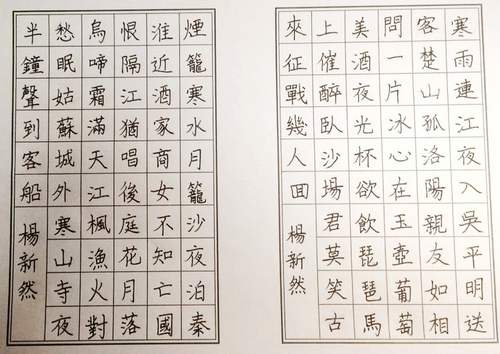 寒雨連江夜入吳平明送
客楚山孤洛陽親友如相
問一片冰心在玉壺葡萄
美酒夜光杯欲飲琵琶馬
上催醉臥沙場君莫笑古
來征戰幾人回
楊新然
煙籠寒水月籠沙夜泊秦
淮近酒家商女不知亡國
恨隔江猶唱後庭花月落
烏啼霜滿天江楓漁火對
愁眠姑蘇城外寒山寺夜
半鐘聲到客船
楊新然